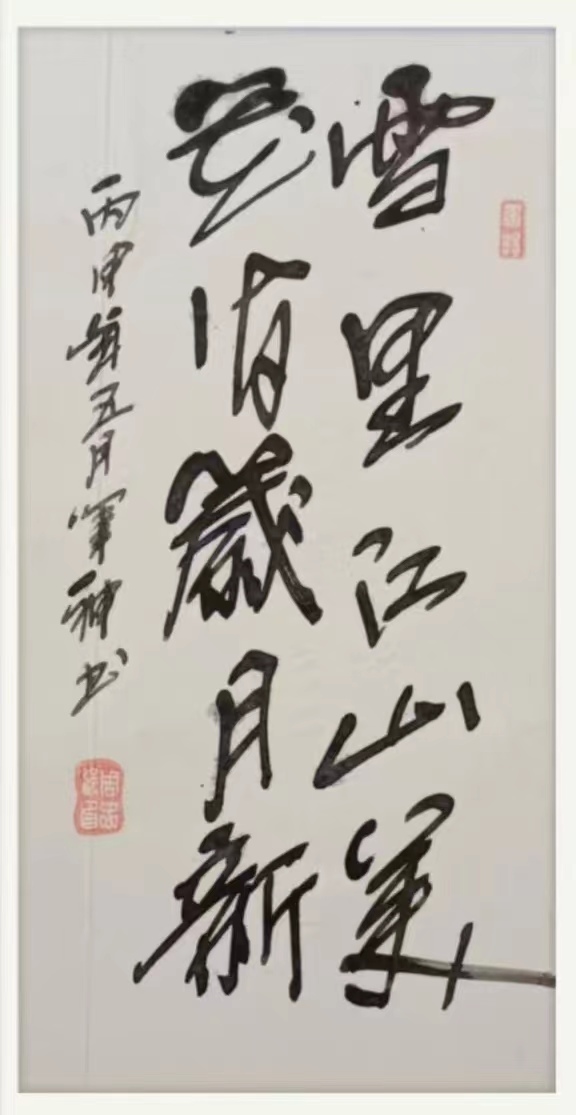 雪里江山美
花間歲月新
丙申年五月軍神书